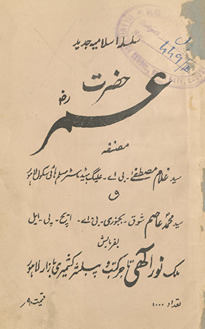 سلسلہ اسلامیہ جدید
حضرت
عمر رضؓ
مصنفہ
سید غلام مصطفےٰ بی۔اے۔ علیگ ہیڈ ماسٹر مسلم ہائی سکول لاہور
و
سید محمد عاصم شوق بجنوری بی۔اے۔ ایچ۔پی۔ایل
بفرمائش
ملک نور الٰہی تاجر کتب و پبلشر کشمیری بازار لاہور
تعداد ۱۰۰۰
قیمت